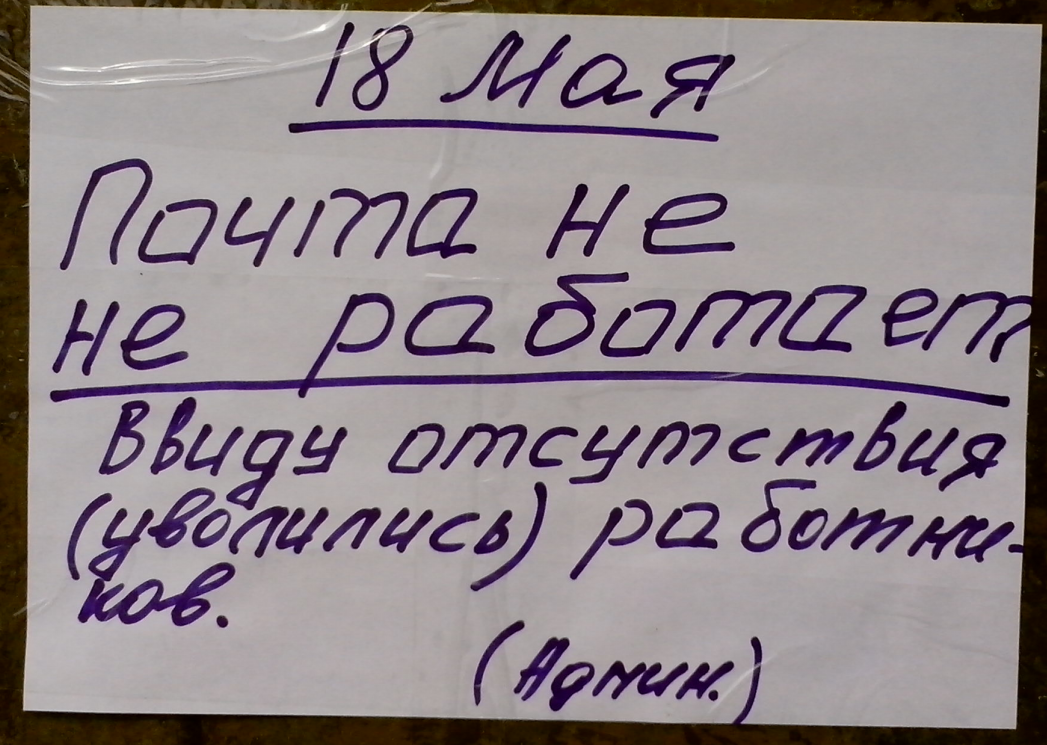 18 Мая
Почта не
не работает
Ввиду отсутствия
(уволились) работни-
ков.
(Админ.)